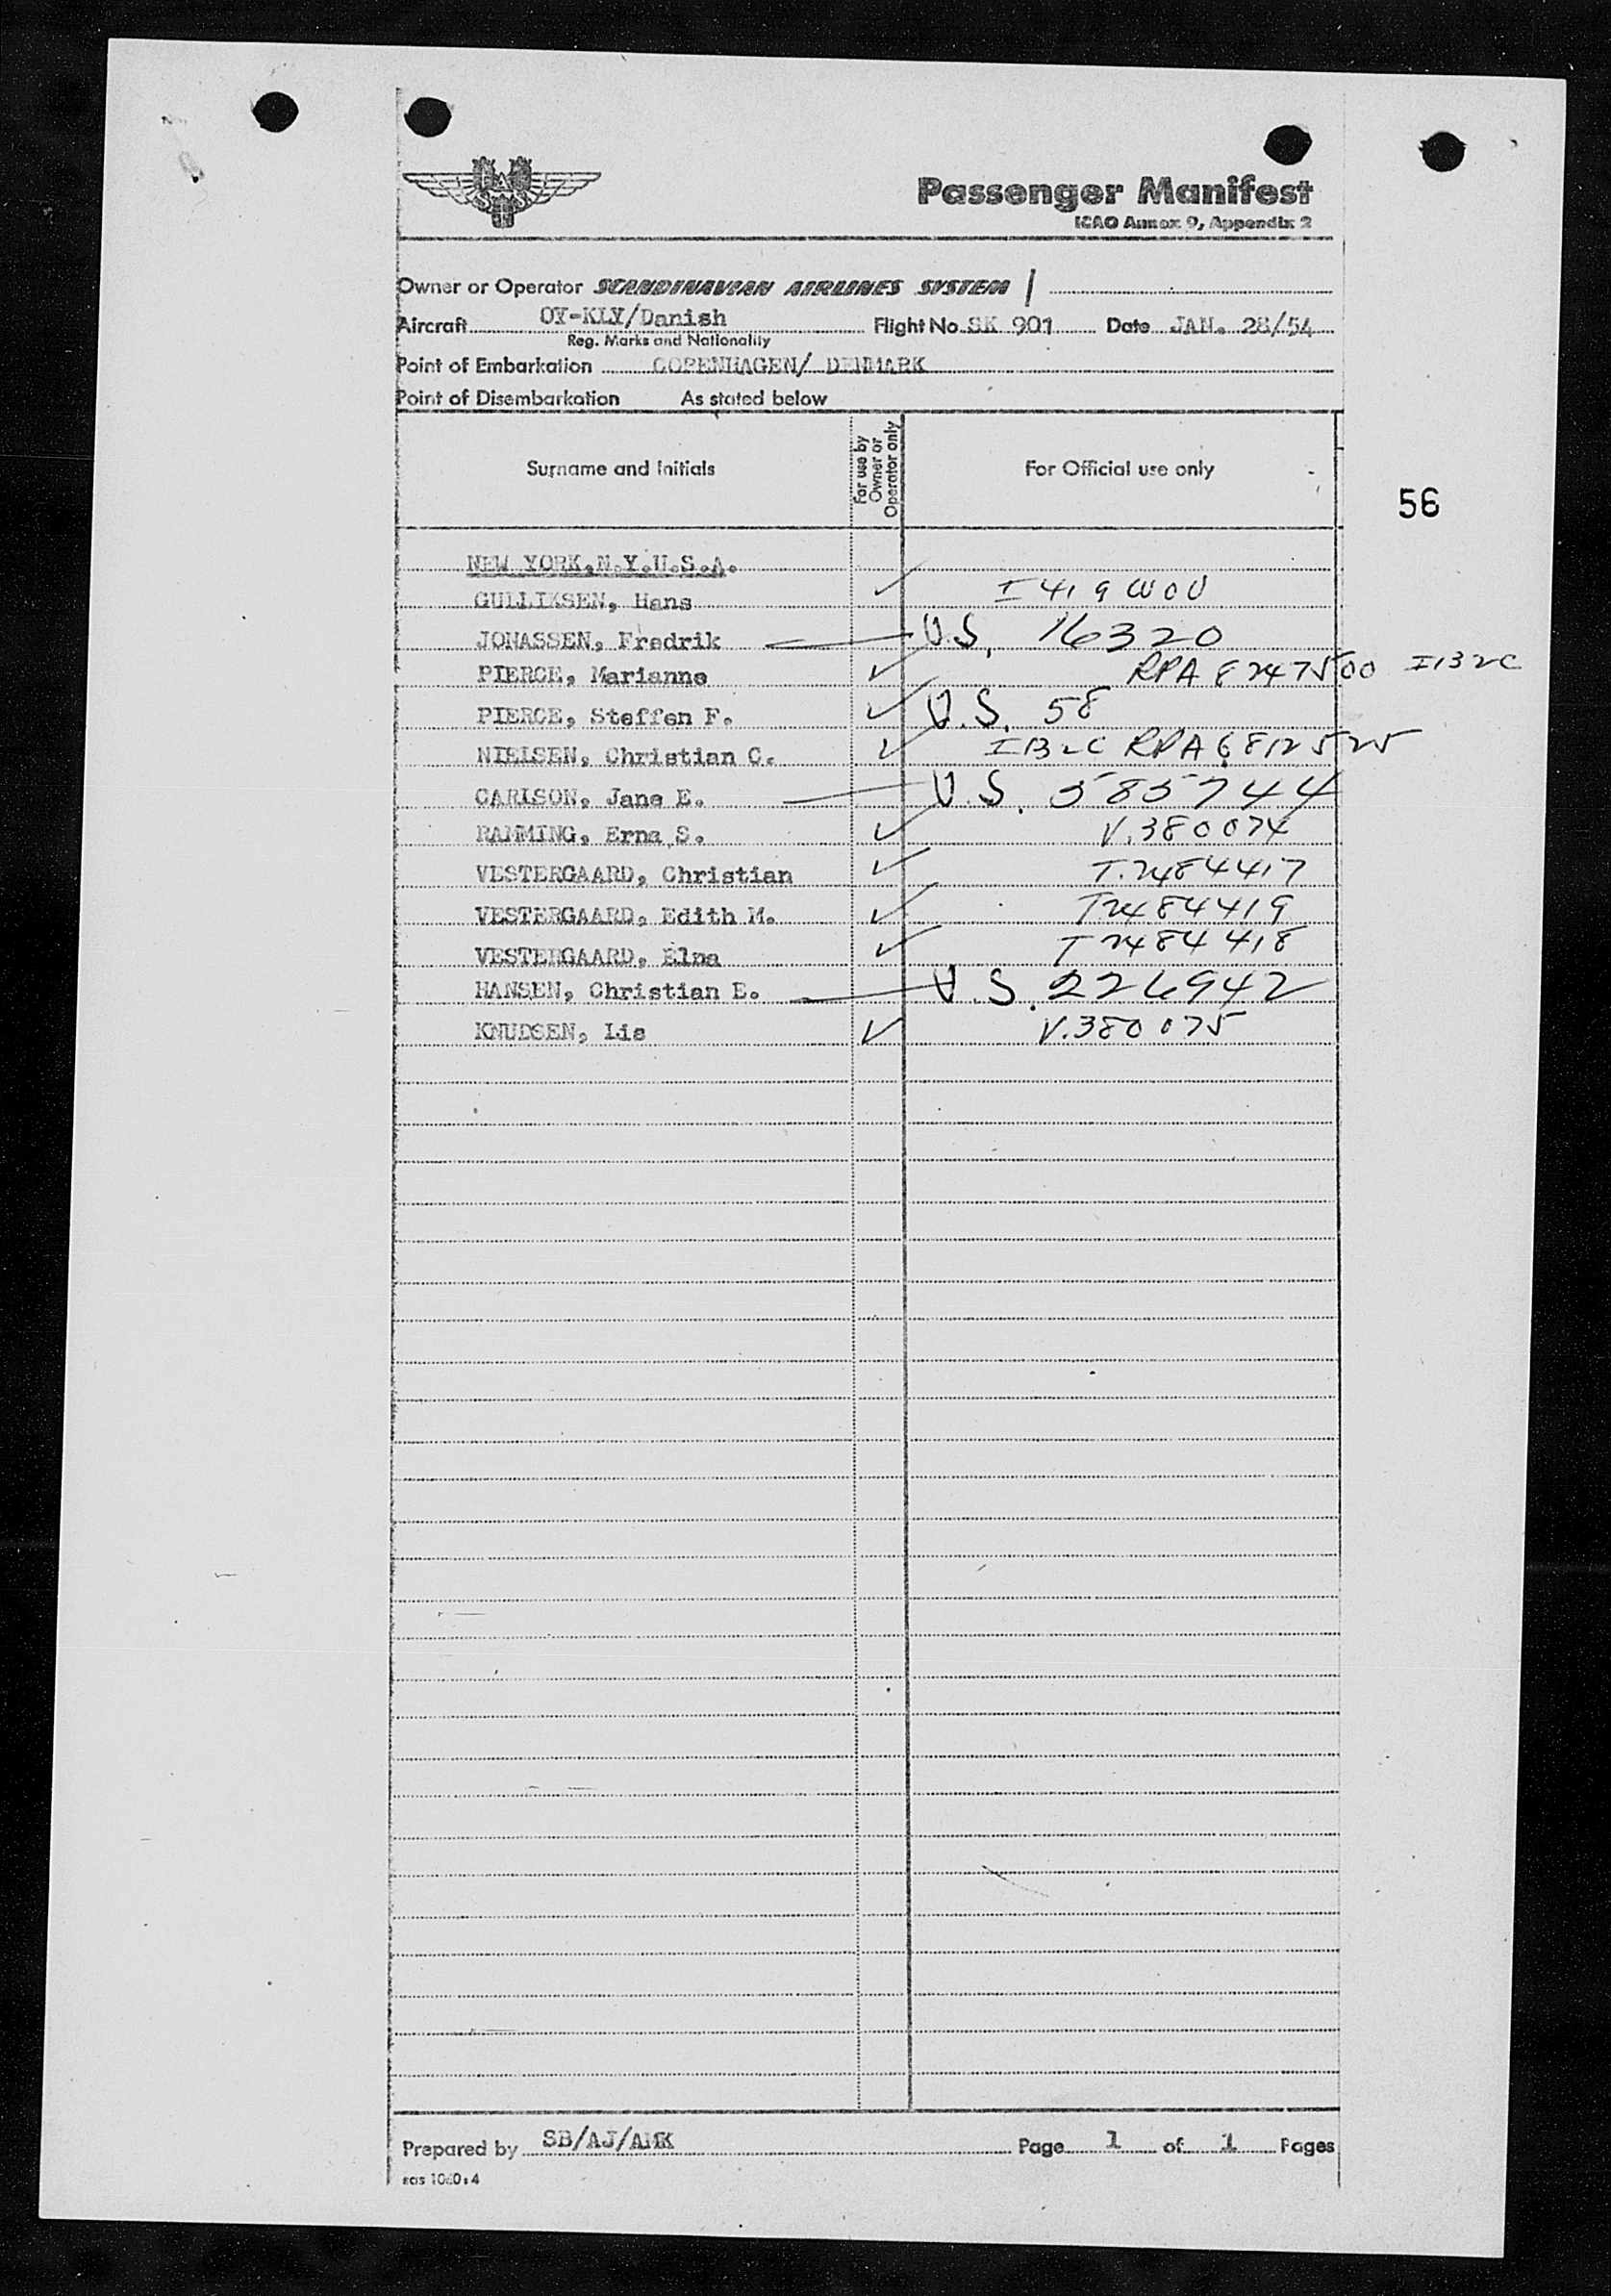 SAS
Passenger Manifest
ICAO Annex 9, Appendix 2
Owner or Operator SCANDINAVIAN AIRLINES SYSTEM /
Aircraft OY-KLY/Danish Flight No. SK 901 Date JAN. 28/54
Reg. Marks and Nationality
Point of Embarkation COPENHAGEN/ DENMARK
Point of Disembarkation As stated below
Surname and Initials For use by Owner or Operator only For Official use only
56
NEW YORK,N.Y.U.S.A.
GULLIKSEN, Hans I 419
JONASSEN, Fredrik U.S. 16320
PIERCE, Marianne RPA 8247500 I132C
PIERCE, Steffen F. U.S. 58
NIELSEN, Christian C. I132C RPA 6812525
CARLSON, Jane E. U.S. 585744
RAMMING, Erna S. V.380074
VESTERGAARD, Christian T.2484417
VESTERGAARD, Edith M. T2484419
VESTERGAARD, Elna T2484418
HANSEN, Christian E. U.S. 226942
KNUDSEN, Lis V.380075
Prepared by SB/AJ/AMK Page 1 of 1 Pages